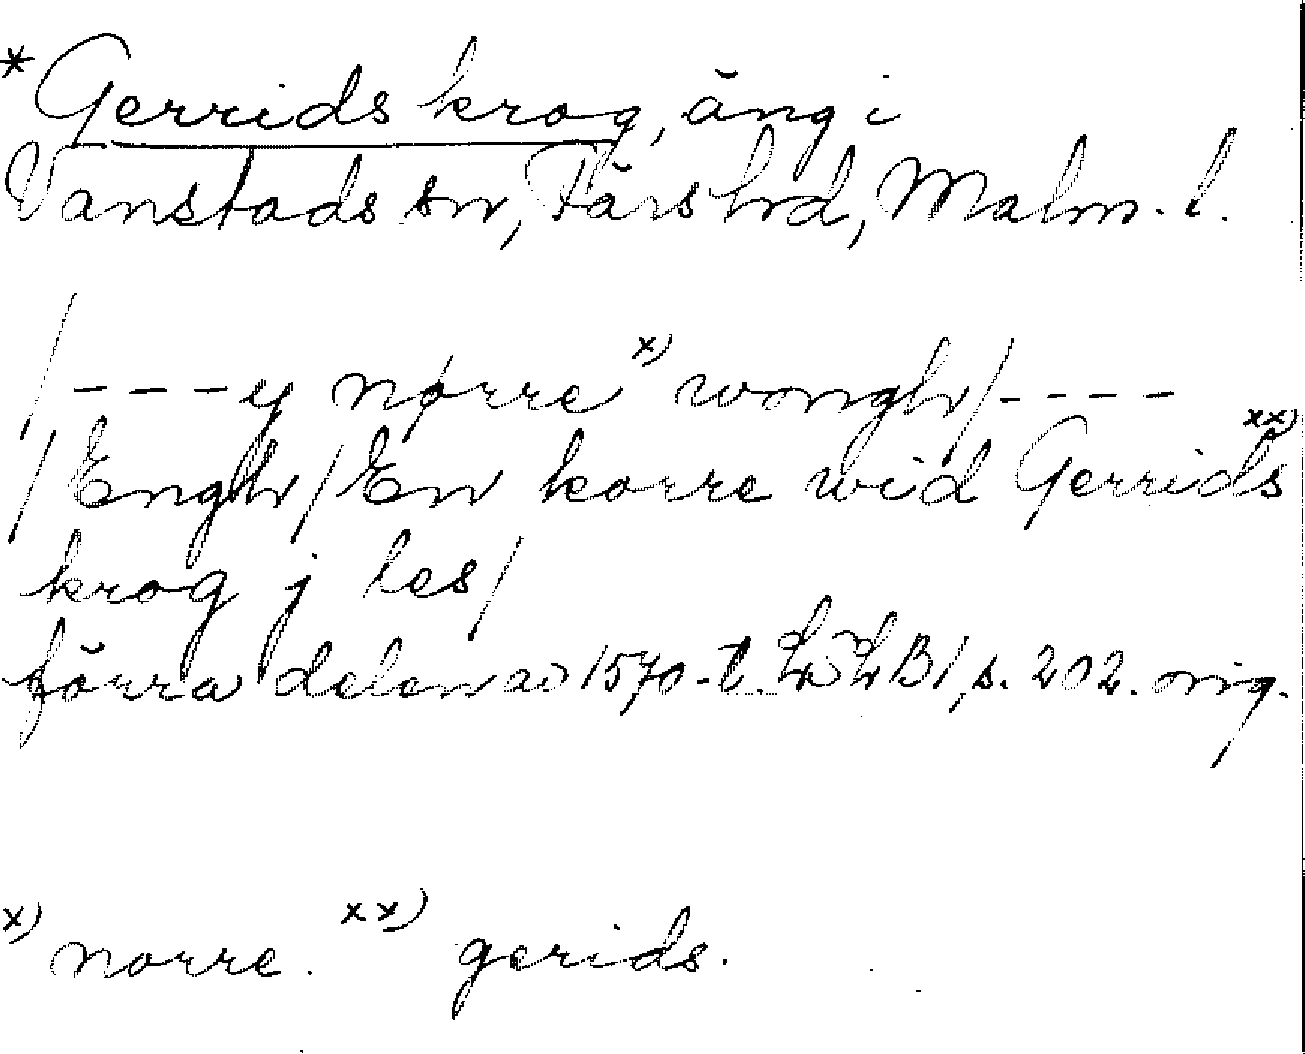 *Gerrids krog, äng i
Vanstads sn, Färs hrd, Malm. l.
/----y nørre x) wongh/----
/Engh/En korre wid Gerrids xx)
krog j les/
förra delen av 1570-t. LLB 1, s. 202. orig.
x) norre. xx) gerids.